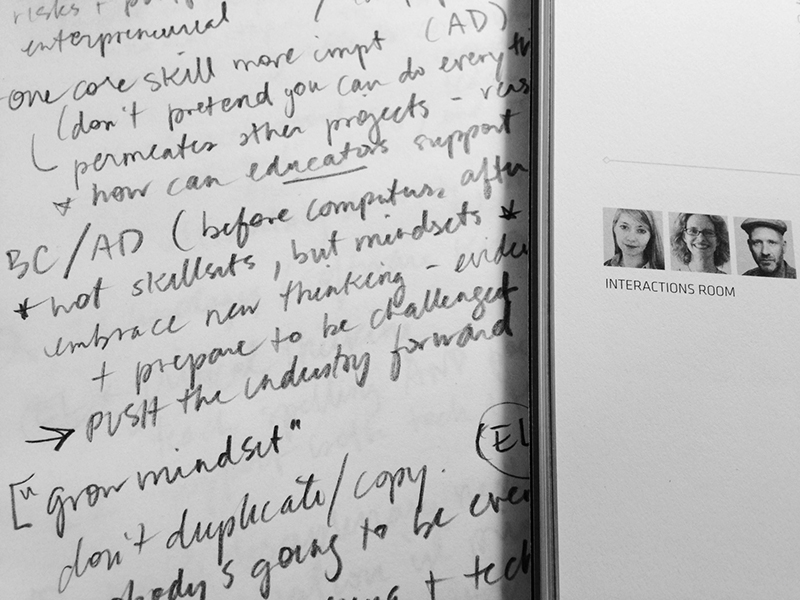 risks +
enterpreneurial /
one core skill more impt (AD)
(don't pretend you can do everyth
permeates other projects - reas
* how can educators support
BC/AD (before computers, after
* not skillsets, but mindsets *
embrace new thinking - evide
+ prepare to be challenged
→ PUSH the industry forward
["grow mindset"
(El
don't duplicate/copy.
body's going to be ever
+ tech
INTERACTIONS ROOM